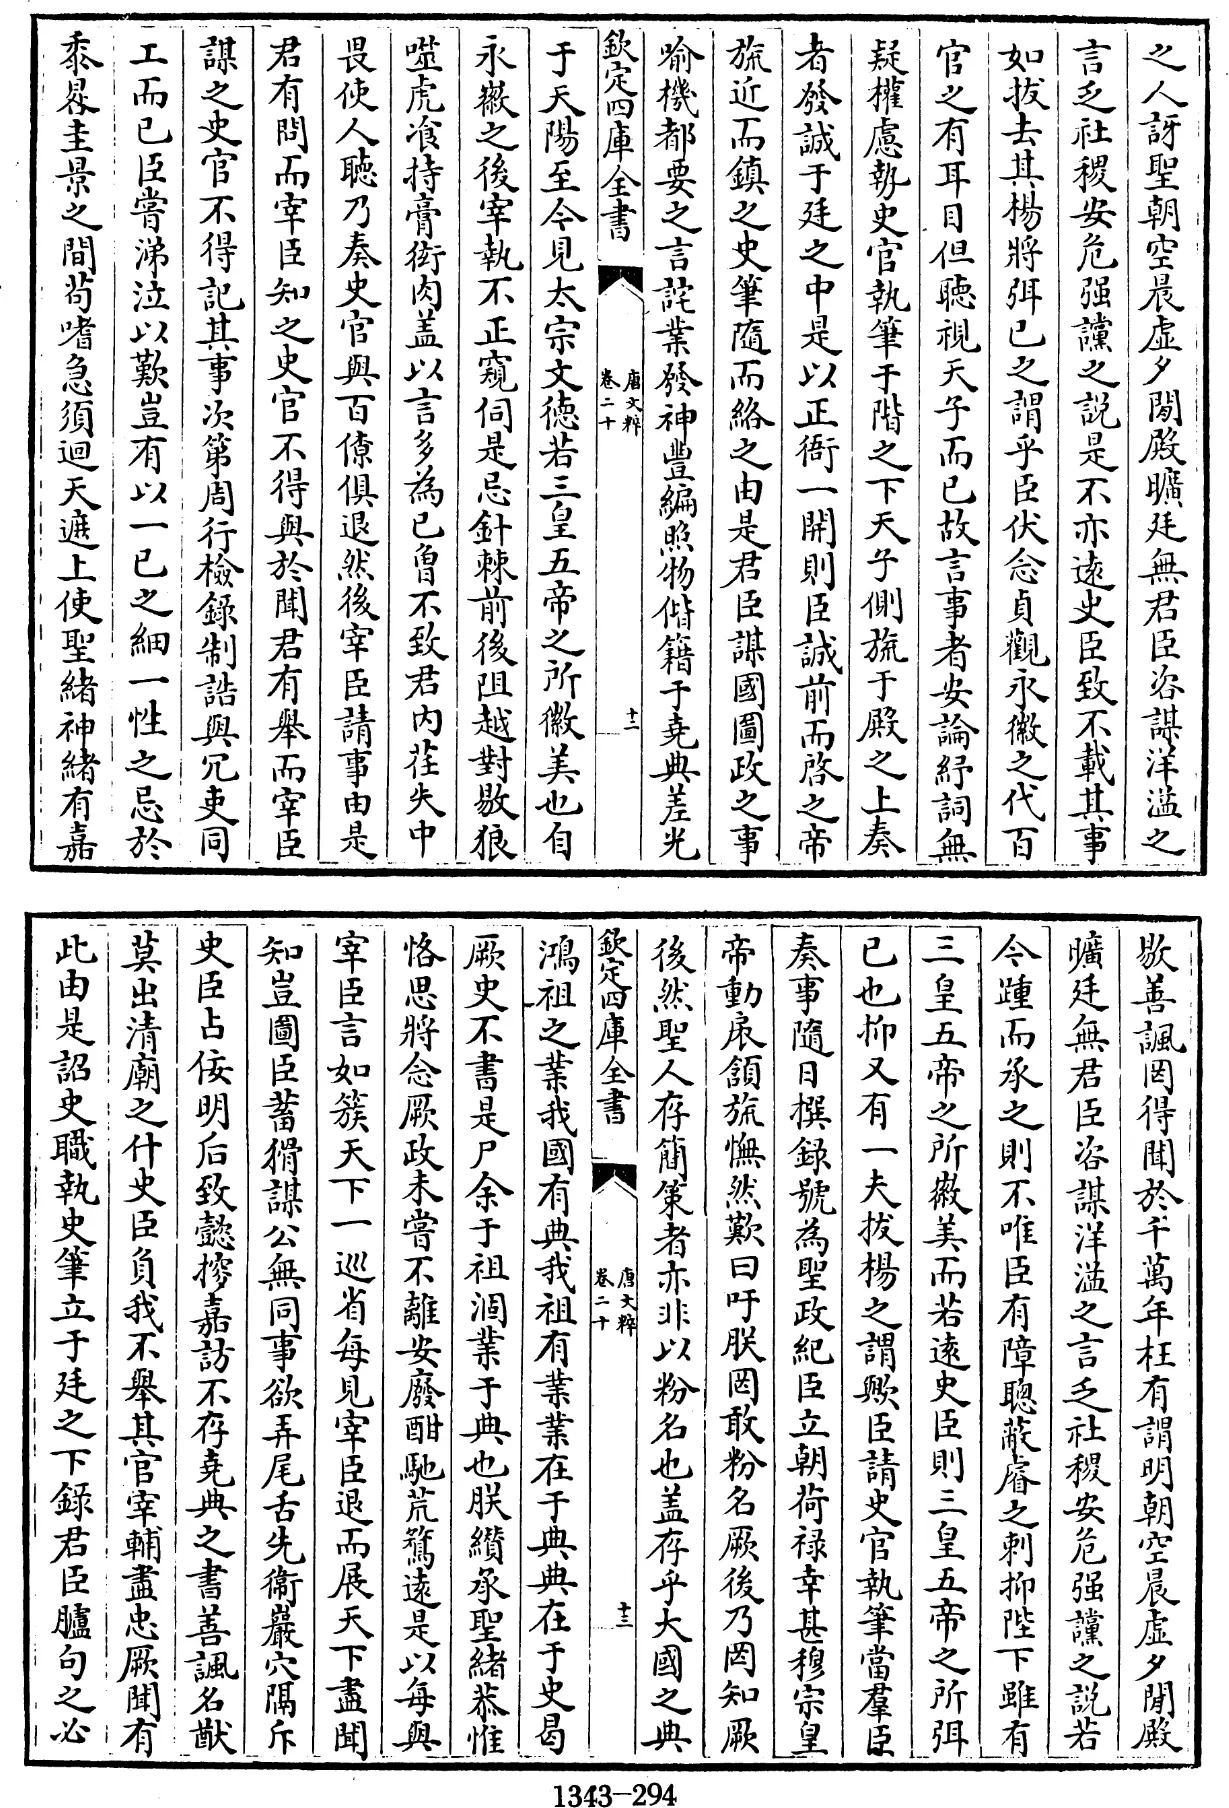 之人訝聖朝空晨虛夕閒殿曠廷無君臣咨謀洋溢之
言乏社稷安危强讜之説是不亦逺史臣致不載其事
如拔去其楊將弭已之謂乎臣伏念貞觀永徽之代百
官之有耳目但聽視天子而已故言事者安論紓詞無
疑權慮執史官執筆于階之下天子側旒于殿之上奏
者發誠于廷之中是以正衙一開則臣誠前而啓之帝
旒近而鎮之史筆隨而絡之由是君臣謀國圖政之事
喻機都要之言詫業發神豐編照物偕籍于堯典差光
欽定四庫全書
唐文粹
卷二十
十二
于天陽至今見太宗文德若三皇五帝之所徽美也自
永徽之後宰執不正窺伺是忌針棘前後阻越對敭狼
噬虎飡持膏銜肉盖以言多為已魯不致君内荏失中
畏使人聴乃奏史官與百僚俱退然後宰臣請事由是
君有問而宰臣知之史官不得與於聞君有舉而宰臣
謀之史官不得記其事次第周行檢錄制誥與冗吏同
工而已臣嘗涕泣以歎豈有以一已之細一性之忌於
黍晷圭景之間苟嗜急須迴天遮上使聖緒神緒有嘉
敭善諷罔得聞於千萬年枉有謂明朝空晨虛夕閒殿
曠廷無君臣咨謀洋溢之言乏社稷安危强讜之説若
今踵而承之則不唯臣有障聰蔽睿之刺抑陛下雖有
三皇五帝之所徽美而若逺史臣則三皇五帝之所弭
已也抑又有一夫拔楊之謂歟臣請史官執筆當羣臣
奏事隨日撰錄號為聖政紀臣立朝荷禄幸甚穆宗皇
帝動扆頷旒憮然歎曰吁朕罔敢粉名厥後乃罔知厥
後然聖人存簡策者亦非以粉名也盖存乎大國之典
欽定四庫全書
唐文粹
卷二十
十三
鴻祖之業我國有典我祖有業業在于典典在于史曷
厥史不書是尸余于祖涸業于典也朕纘承聖緒恭惟
恪思將念厥政未嘗不離安廢酣馳荒騖逺是以每與
宰臣言如簇天下一巡省每見宰臣退而展天下盡聞
知豈圖臣蓄猾謀公無同事欲弄尾舌先衞巖穴隔斥
史臣占佞明后致懿搾嘉訪不存堯典之書善諷名猷
莫出清廟之什史臣負我不舉其官宰輔盡忠厥聞有
此由是詔史職執史筆立于廷之下錄君臣臚句之必
1343-294